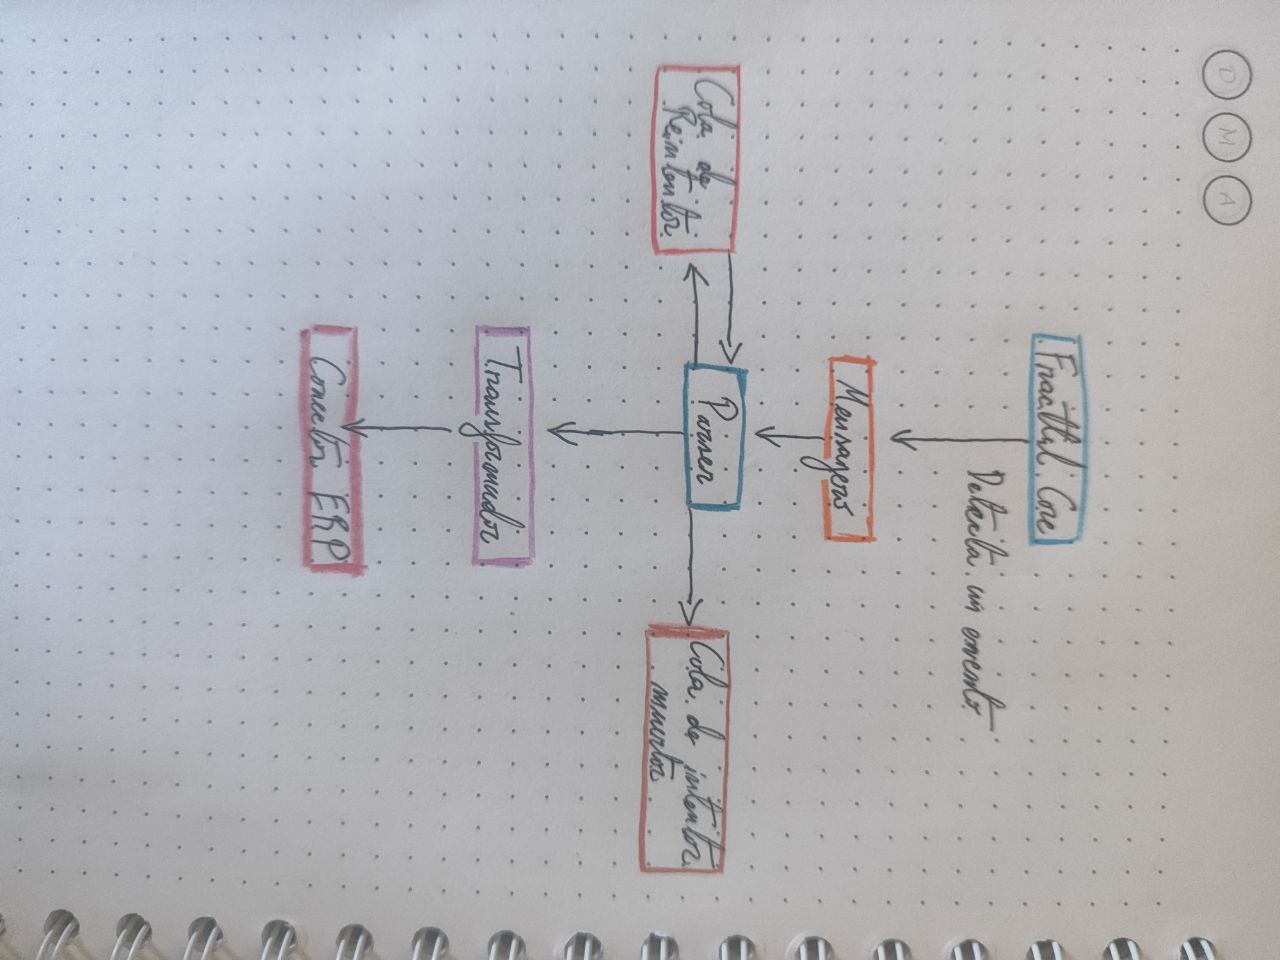 D M A
Fracttal Core
Detecta un evento
Mensajero
Cola de
Reintentos
Parser
Cola de intentos
muertos
Transformador
Conector ERP